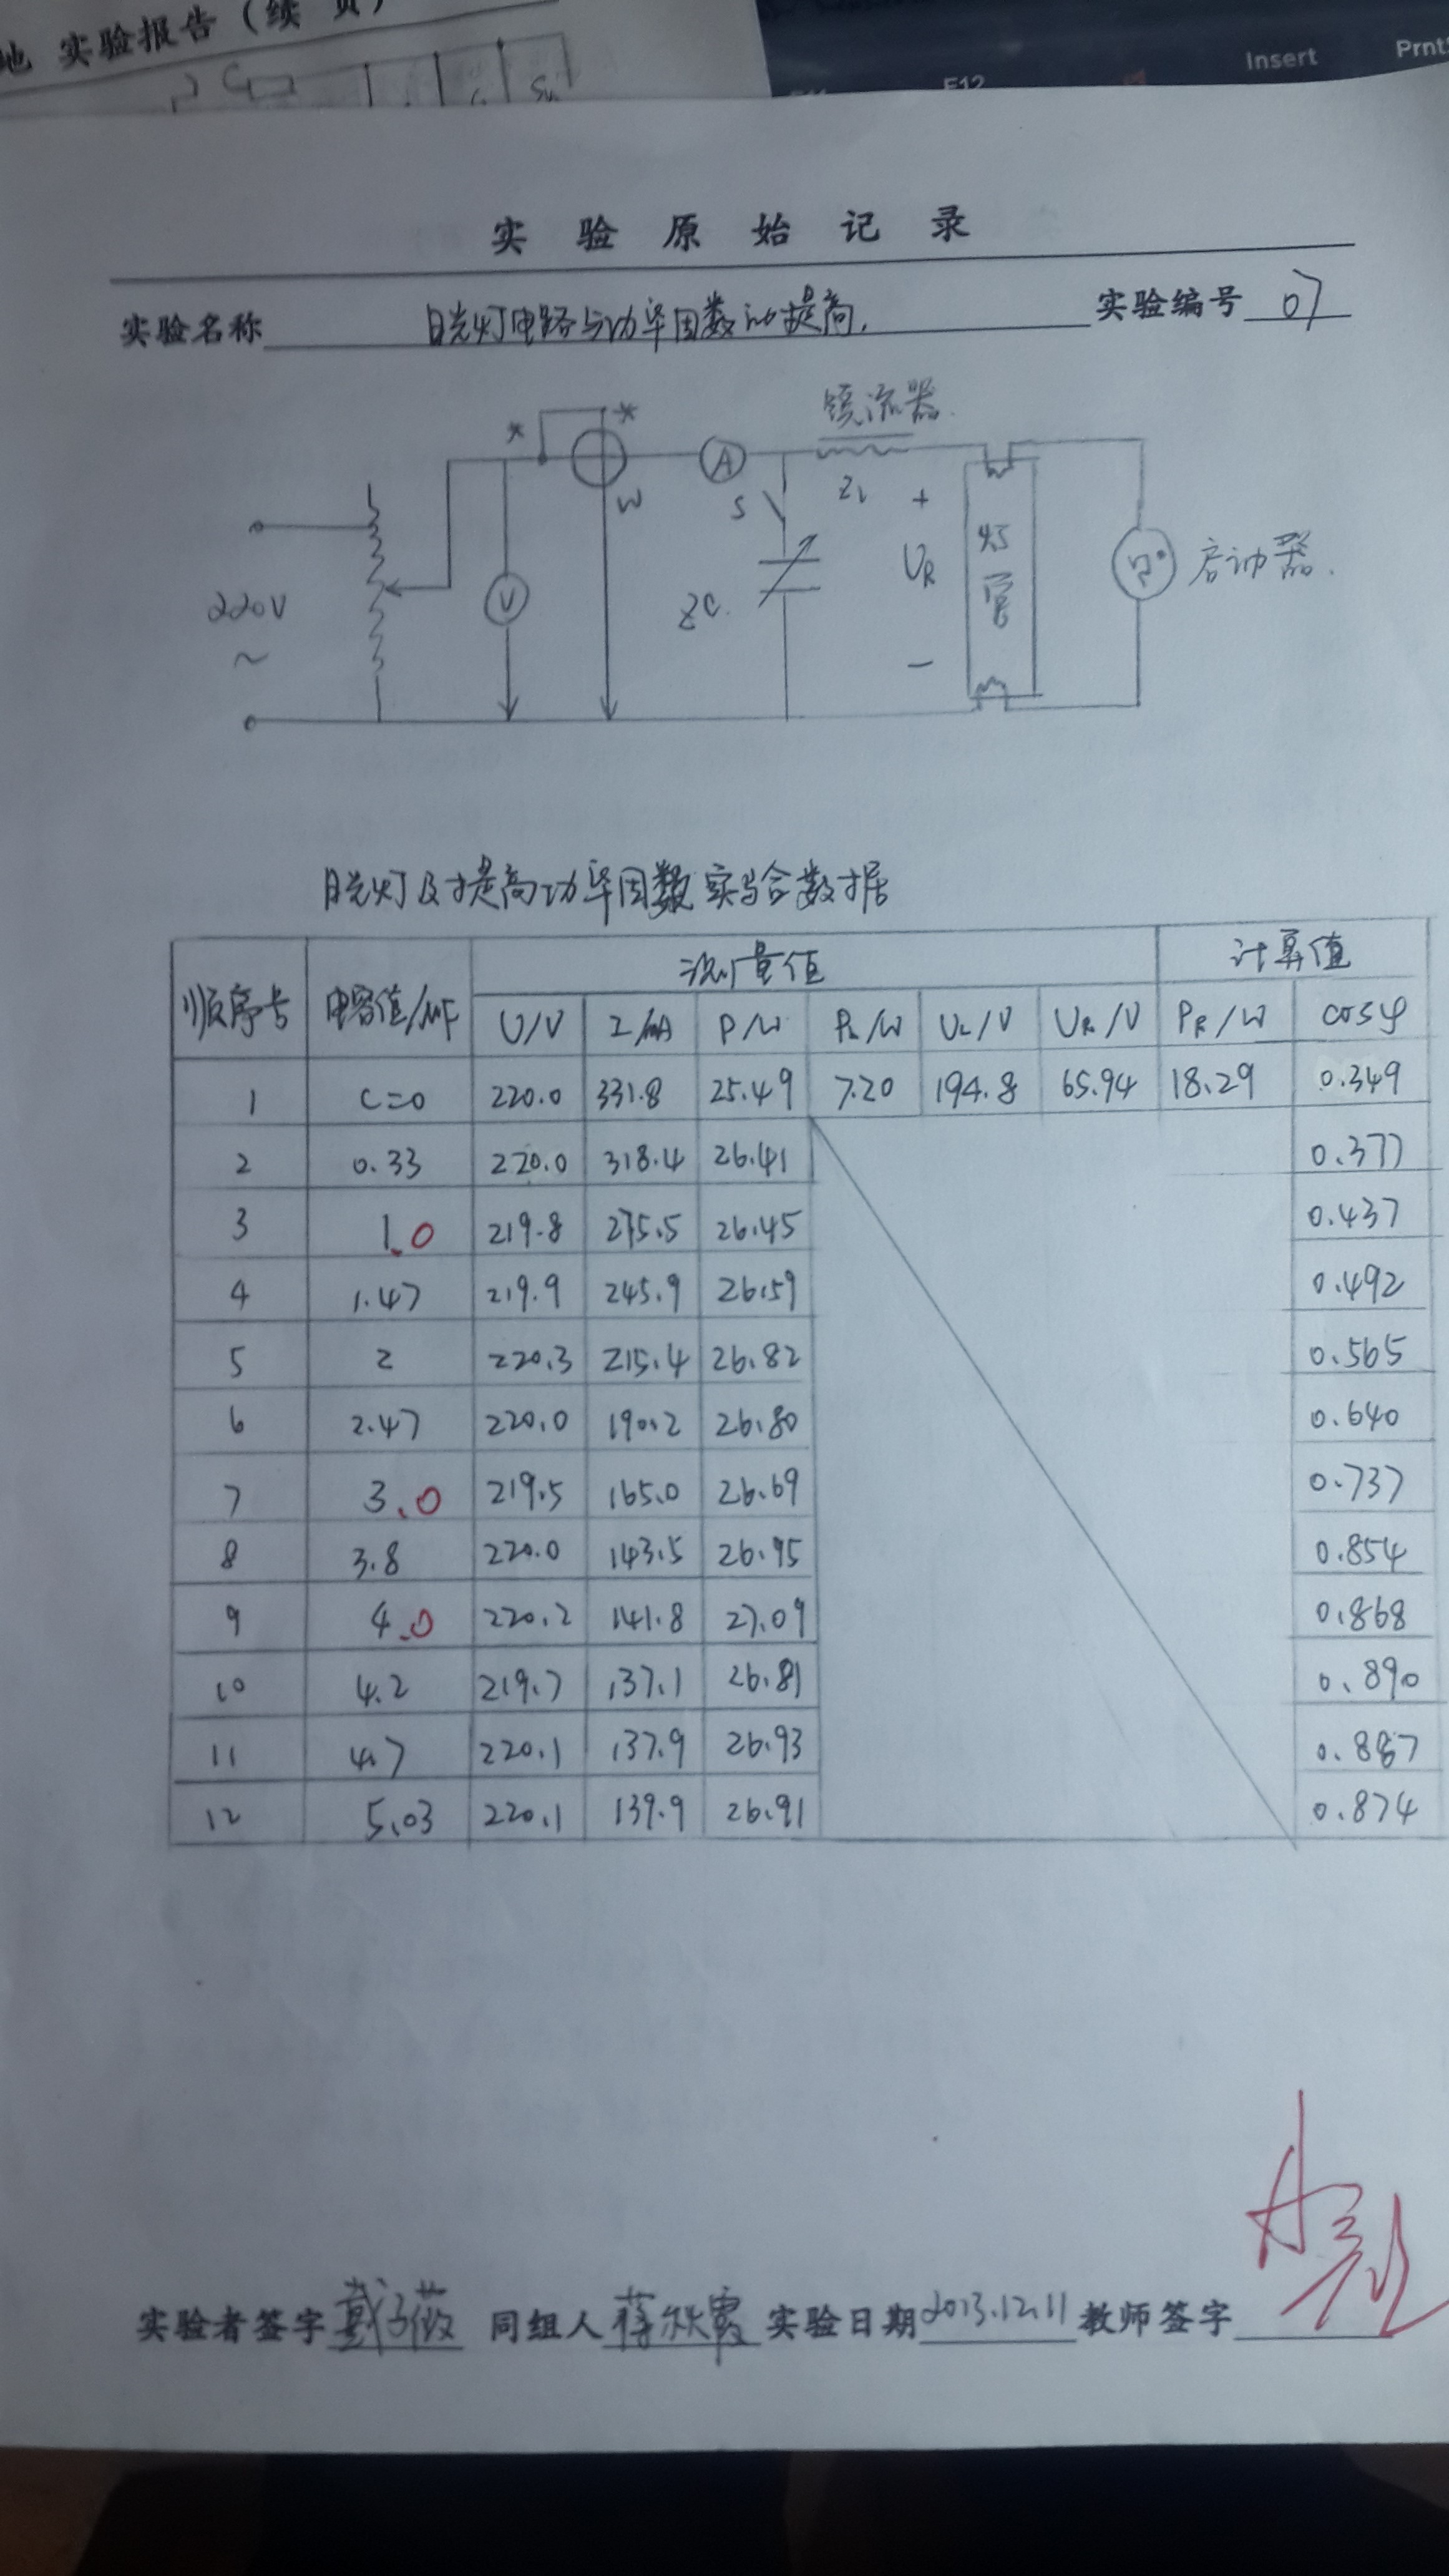 地 实验报告（续 页）
Insert
Prnt
F12
实验原始记录
实验名称 日光灯电路与功率因数的提高. 实验编号 07
镇流器.
* *
A
W S ZL +
220V ~ V ZC. UR 灯管 启动器.
−
日光灯及提高功率因数实验数据
顺序号 电容值/μF 测量值 计算值
U/V I/mA P/W PL/W UL/V UR/V PR/W cosφ
1 C=0 220.0 331.8 25.49 7.20 194.8 65.94 18.29 0.349
2 0.33 220.0 318.4 26.41 0.377
3 1.0 219.8 275.5 26.45 0.437
4 1.47 219.9 245.9 26.59 0.492
5 2 220.3 215.4 26.82 0.565
6 2.47 220.0 190.2 26.80 0.640
7 3.0 219.5 165.0 26.69 0.737
8 3.8 220.0 143.5 26.95 0.854
9 4.0 220.2 141.8 27.09 0.868
10 4.2 219.7 137.1 26.81 0.890
11 4.7 220.1 137.9 26.93 0.887
12 5.03 220.1 139.9 26.91 0.874
实验者签字 戴子薇 同组人 蒋秋霞 实验日期 2013.12.11 教师签字